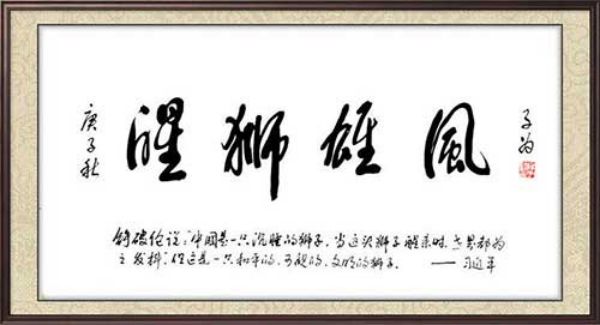 庚子秋
醒獅雄風
子为
拿破伦说:“中國是一只沉睡的狮子,当这头狮子醒来时,世界都为
之发抖”.但这是一只和平的,可亲的,文明的狮子. ——习近平